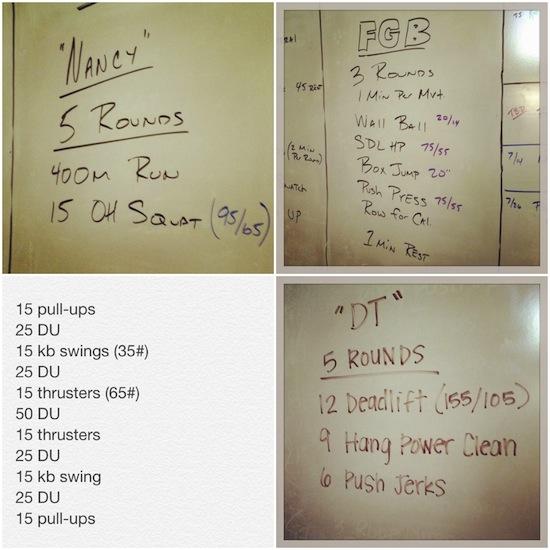 "NANCY"
5 ROUNDS
400M RUN
15 OH SQUAT (95/65)
FGB
3 ROUNDS
1 MIN PER MVT.
WALL BALL 20/14
SDLHP 75/55
BOX JUMP 20"
PUSH PRESS 75/55
ROW FOR CAL.
1 MIN REST
45 REST
(2 MIN
UP
TBD
7/14
7/26
15 pull-ups
25 DU
15 kb swings (35#)
25 DU
15 thrusters (65#)
50 DU
15 thrusters
25 DU
15 kb swing
25 DU
15 pull-ups
"DT"
5 ROUNDS
12 Deadlift (155/105)
9 Hang Power Clean
6 Push Jerks